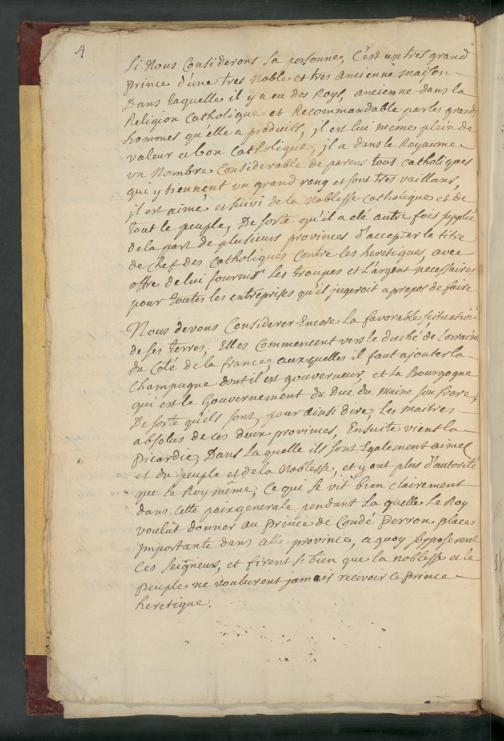 4
Si Nous Considerons Sa personne, C'est un tres grand
Prince d'une tres Noble et tres ancienne maison
Dans laquelle il y a eu des Roys, ancienne dans la
Religion Catholique et Recommandable par les grands
hommes qu'elle a produits, il est lui meme plein de
valeur et bon Catholique, il a dans le Royaume
un Nombre Considerable de parens tous catholiques
qui y tiennent un grand rang et sont tres vaillans,
il est aimé et suivi de la Noblesse Catholique et de
tout le peuple, De sorte qu'il a eté autre fois supplié
de la part de plusieurs provinces d'accepter le titre
de Chef des Catholiques Contre les heretiques, avec
offre de lui fournir Les troupes et L'argent necessaires
pour toutes les entreprises qu'il jugeroit a propos de faire.
Nous devons Considerer Encore La favorable situation
de ses terres, Elles Commencent vers le duché de Lorraine
du Coté de la france, auxquelles il faut ajouter la
Champagne dont il est gouverneur, et la Bourgogne
qui est le Gouvernement du Duc du Maine son frere,
De sorte qu'ils sont, pour ainsi dire, Les maitres
absolus de ces deux provinces, Ensuite vient la
Picardie, Dans laquelle ils sont Egalement aimez
et du peuple et de la Noblesse, et y ont plus d'autorité
que le Roy même, Ce qui se vit bien clairement
dans cette paix generale pendant La quelle Le Roy
voulût donner au Prince de Condé Perron, place
Importante dans cette province, a quoy s'opposerent
Ces seigneurs, et firent si bien que la noblesse et le
Peuple ne voulurent jamais recevoir Ce Prince
heretique.